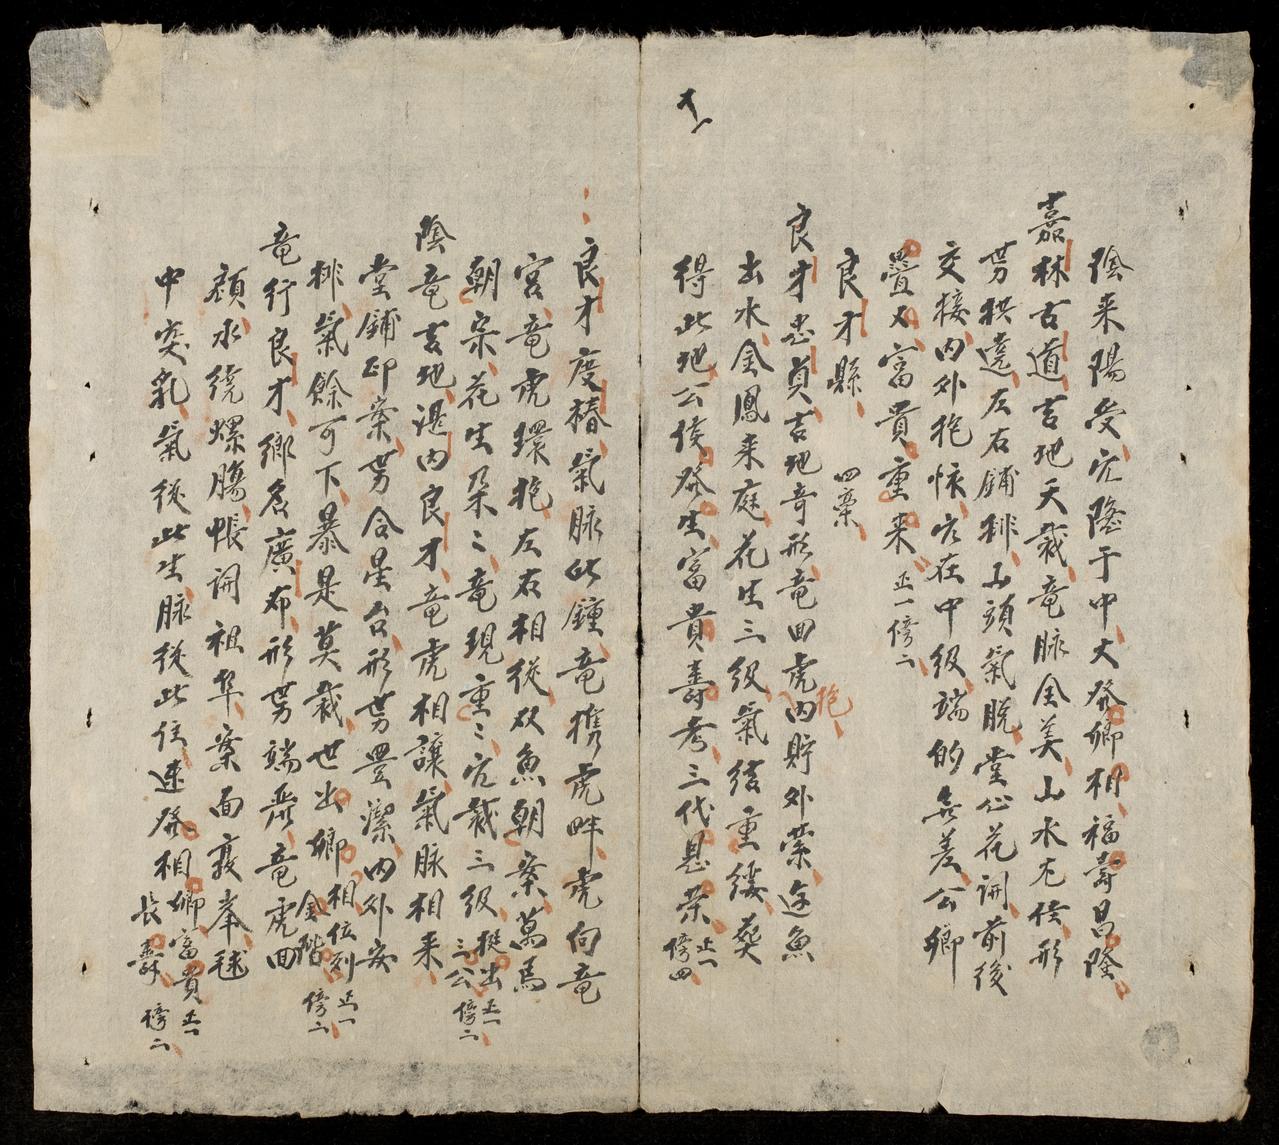 陰来陽受穴隆于中大發卿相福壽昌隆
嘉林古道吉地天裁竜脉全美山水尤佳形
勢拱邊左右鋪排山頭氣脱堂心花開前後
交接内外抱懐穴在中級端的無差公卿
疊又富貴重来 正一傍二
良才縣 四藁
良才忠貞吉地奇形竜回虎抱内貯外縈逆魚
出水金鳳来庭花生三級氣结重縷葵
得此地公侯發生富貴壽考三代恩荣 正一傍四
才
良才度椿氣脉此鍾竜携虎畔虎向竜
宮竜虎環抱左右相從双魚朝案萬馬
朝宗花生朶〻竜現重〻穴裁三级挺出三公 正一傍二
陰竜吉地湛内良才竜虎相讓氣脉相来
堂鋪印案勢合星台形勢豊潔内外安
排氣餘可下暴是莫裁世出卿相位列金階 正一傍二
竜行良才鄉名廣布形勢端嚴竜虎回
顔水繞螺腸帳開祖阜案面襄奉毬
中突乳氣從此生脉從此住速發相卿富貴長壽 正一傍二